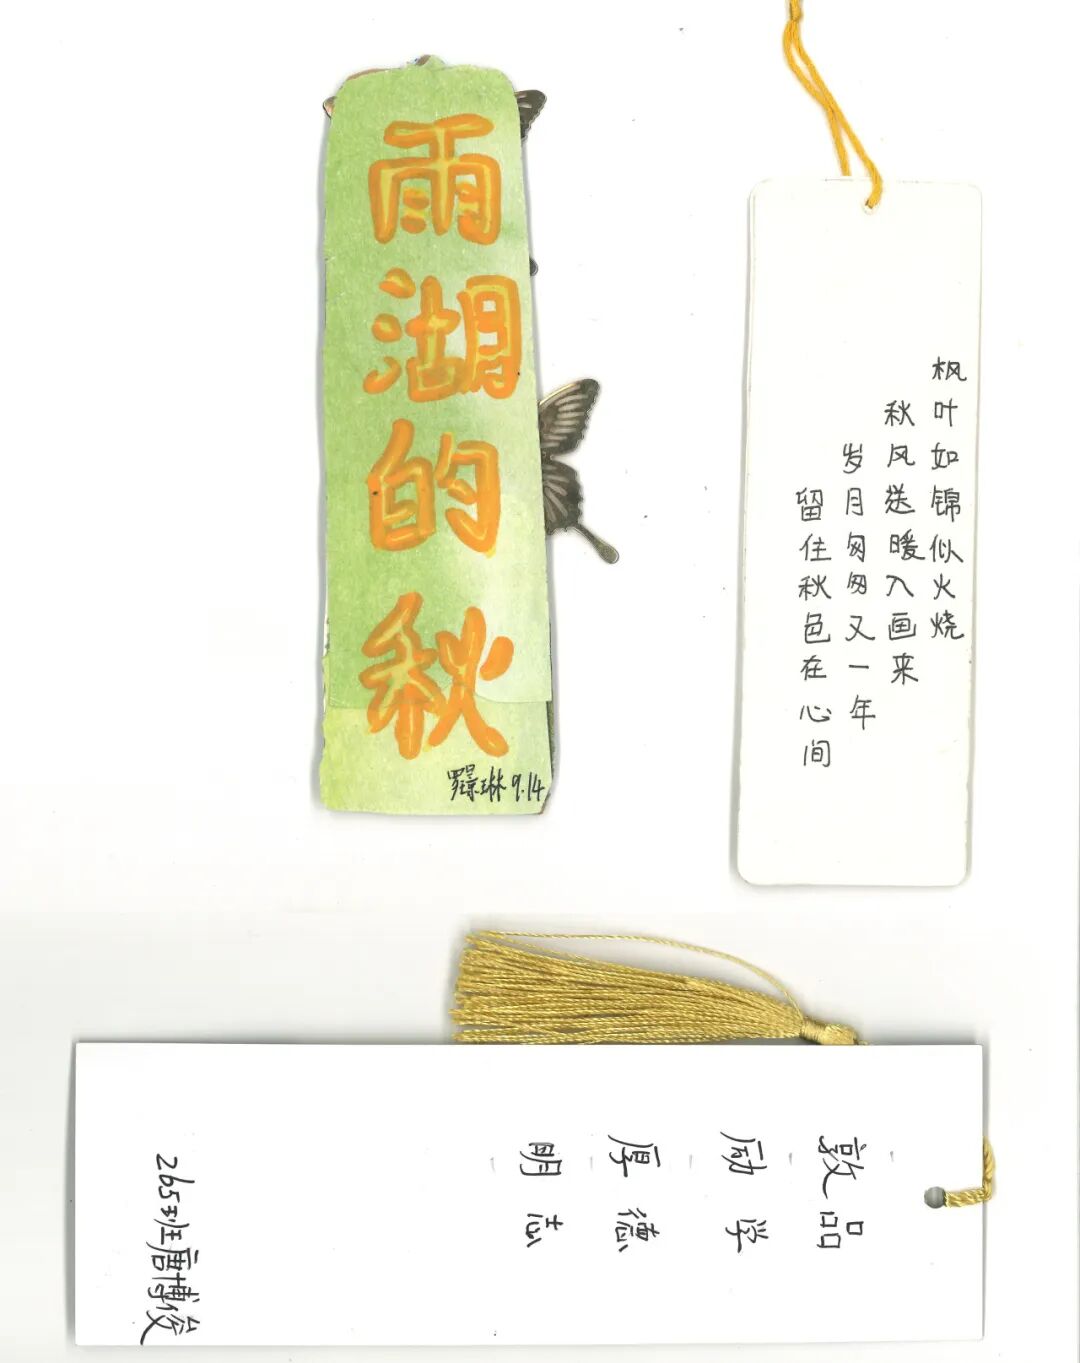 雨湖的秋
罗璟琳 9.14
枫叶如锦似火烧
秋风送暖入画来
岁月匆匆又一年
留住秋色在心间
敦品
励学
厚德
明志
265班唐博俊